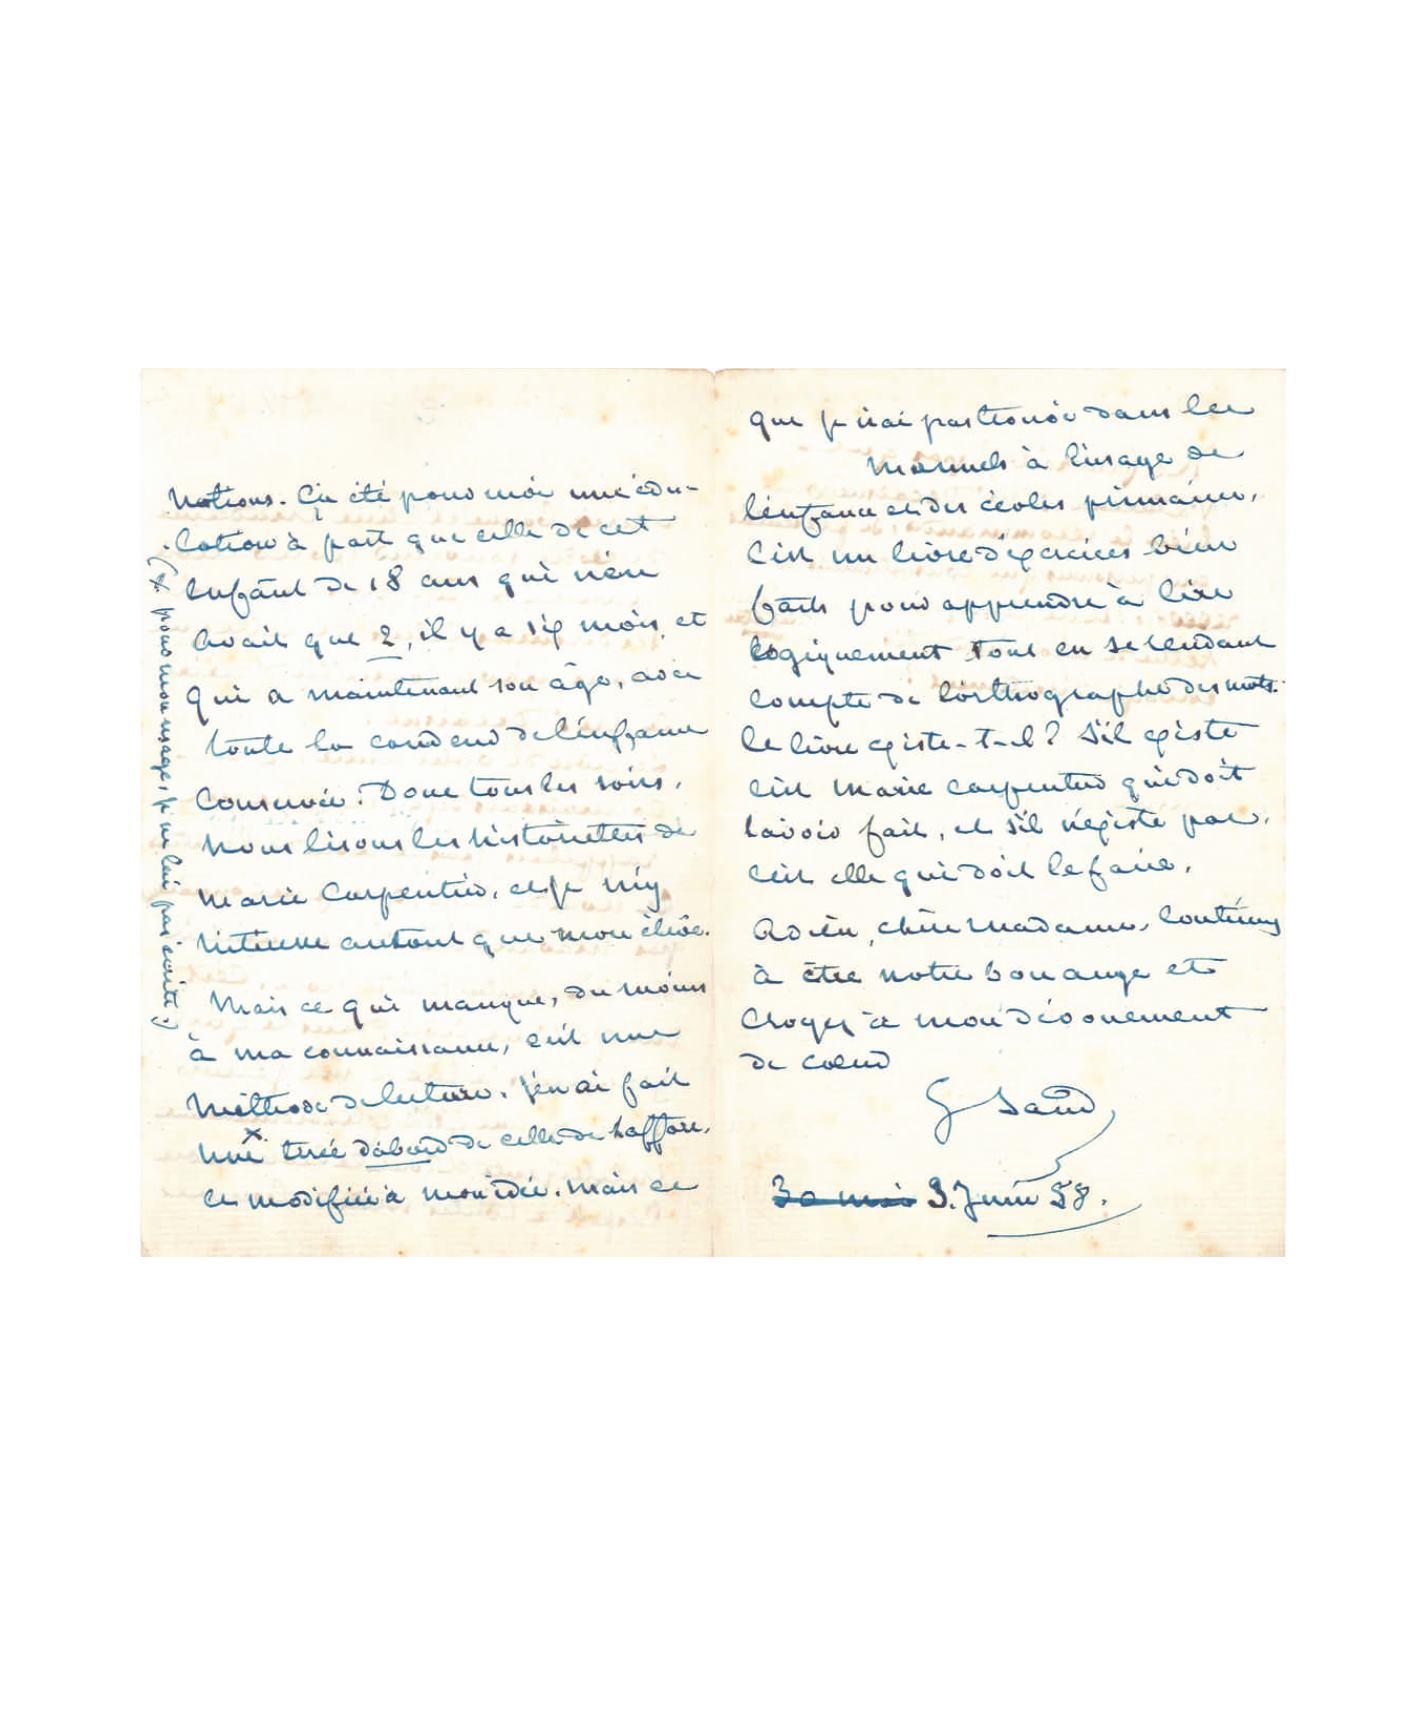 notions. Ç'a été pour moi une édu-
cation à part que celle de cet
enfant de 18 ans qui n'en
avait que 2, il y a six mois, et
qui a maintenant son âge, avec
toute la candeur de l'enfance
conservée. Donc tous les soirs,
nous lisons les historiettes de
Marie Carpentier, et je m'y
intéresse autant que mon élève.
Mais ce qui manque, du moins
à ma connaissance, c'est une
méthode de lecture. J'en ai fait
une x tirée d'abord de celle de Laffore,
et modifiée à mon idée. Mais ce
(x pour mon usage, je ne l'ai pas écrite.)
que je n'ai pas trouvé dans les
manuels à l'usage de
l'enfance et des écoles primaires,
c'est un livre d'exercices bien
faits pour apprendre à lire
logiquement tout en se rendant
compte de l'orthographe des mots.
Le livre existe-t-il? S'il existe
c'est Marie Carpentier qui doit
l'avoir fait, et s'il n'existe pas,
c'est elle qui doit le faire.
Adieu, chère Madame, continuez
à être notre bon ange et
croyez à mon dévouement
de cœur
G Sand
3 Juin 58.